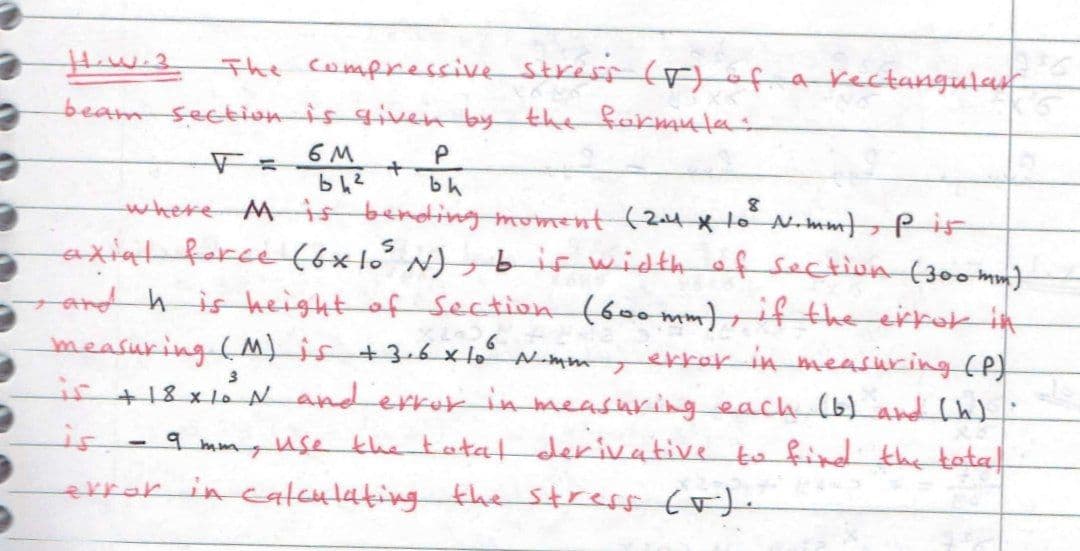 H.W.3 The compressive stress (σ) of a rectangular
beam section is given by the formula:
σ = 6M / bh² + P / bh
where M is bending moment (2.4 x 10⁸ N.mm), P is
axial force (6x10⁵ N), b is width of section (300 mm)
, and h is height of section (600 mm), if the error in
measuring (M) is +3.6 x 10⁶ N.mm, error in measuring (P)
is +18 x 10³ N and error in measuring each (b) and (h)
is - 9 mm, use the total derivative to find the total
error in calculating the stress (σ).